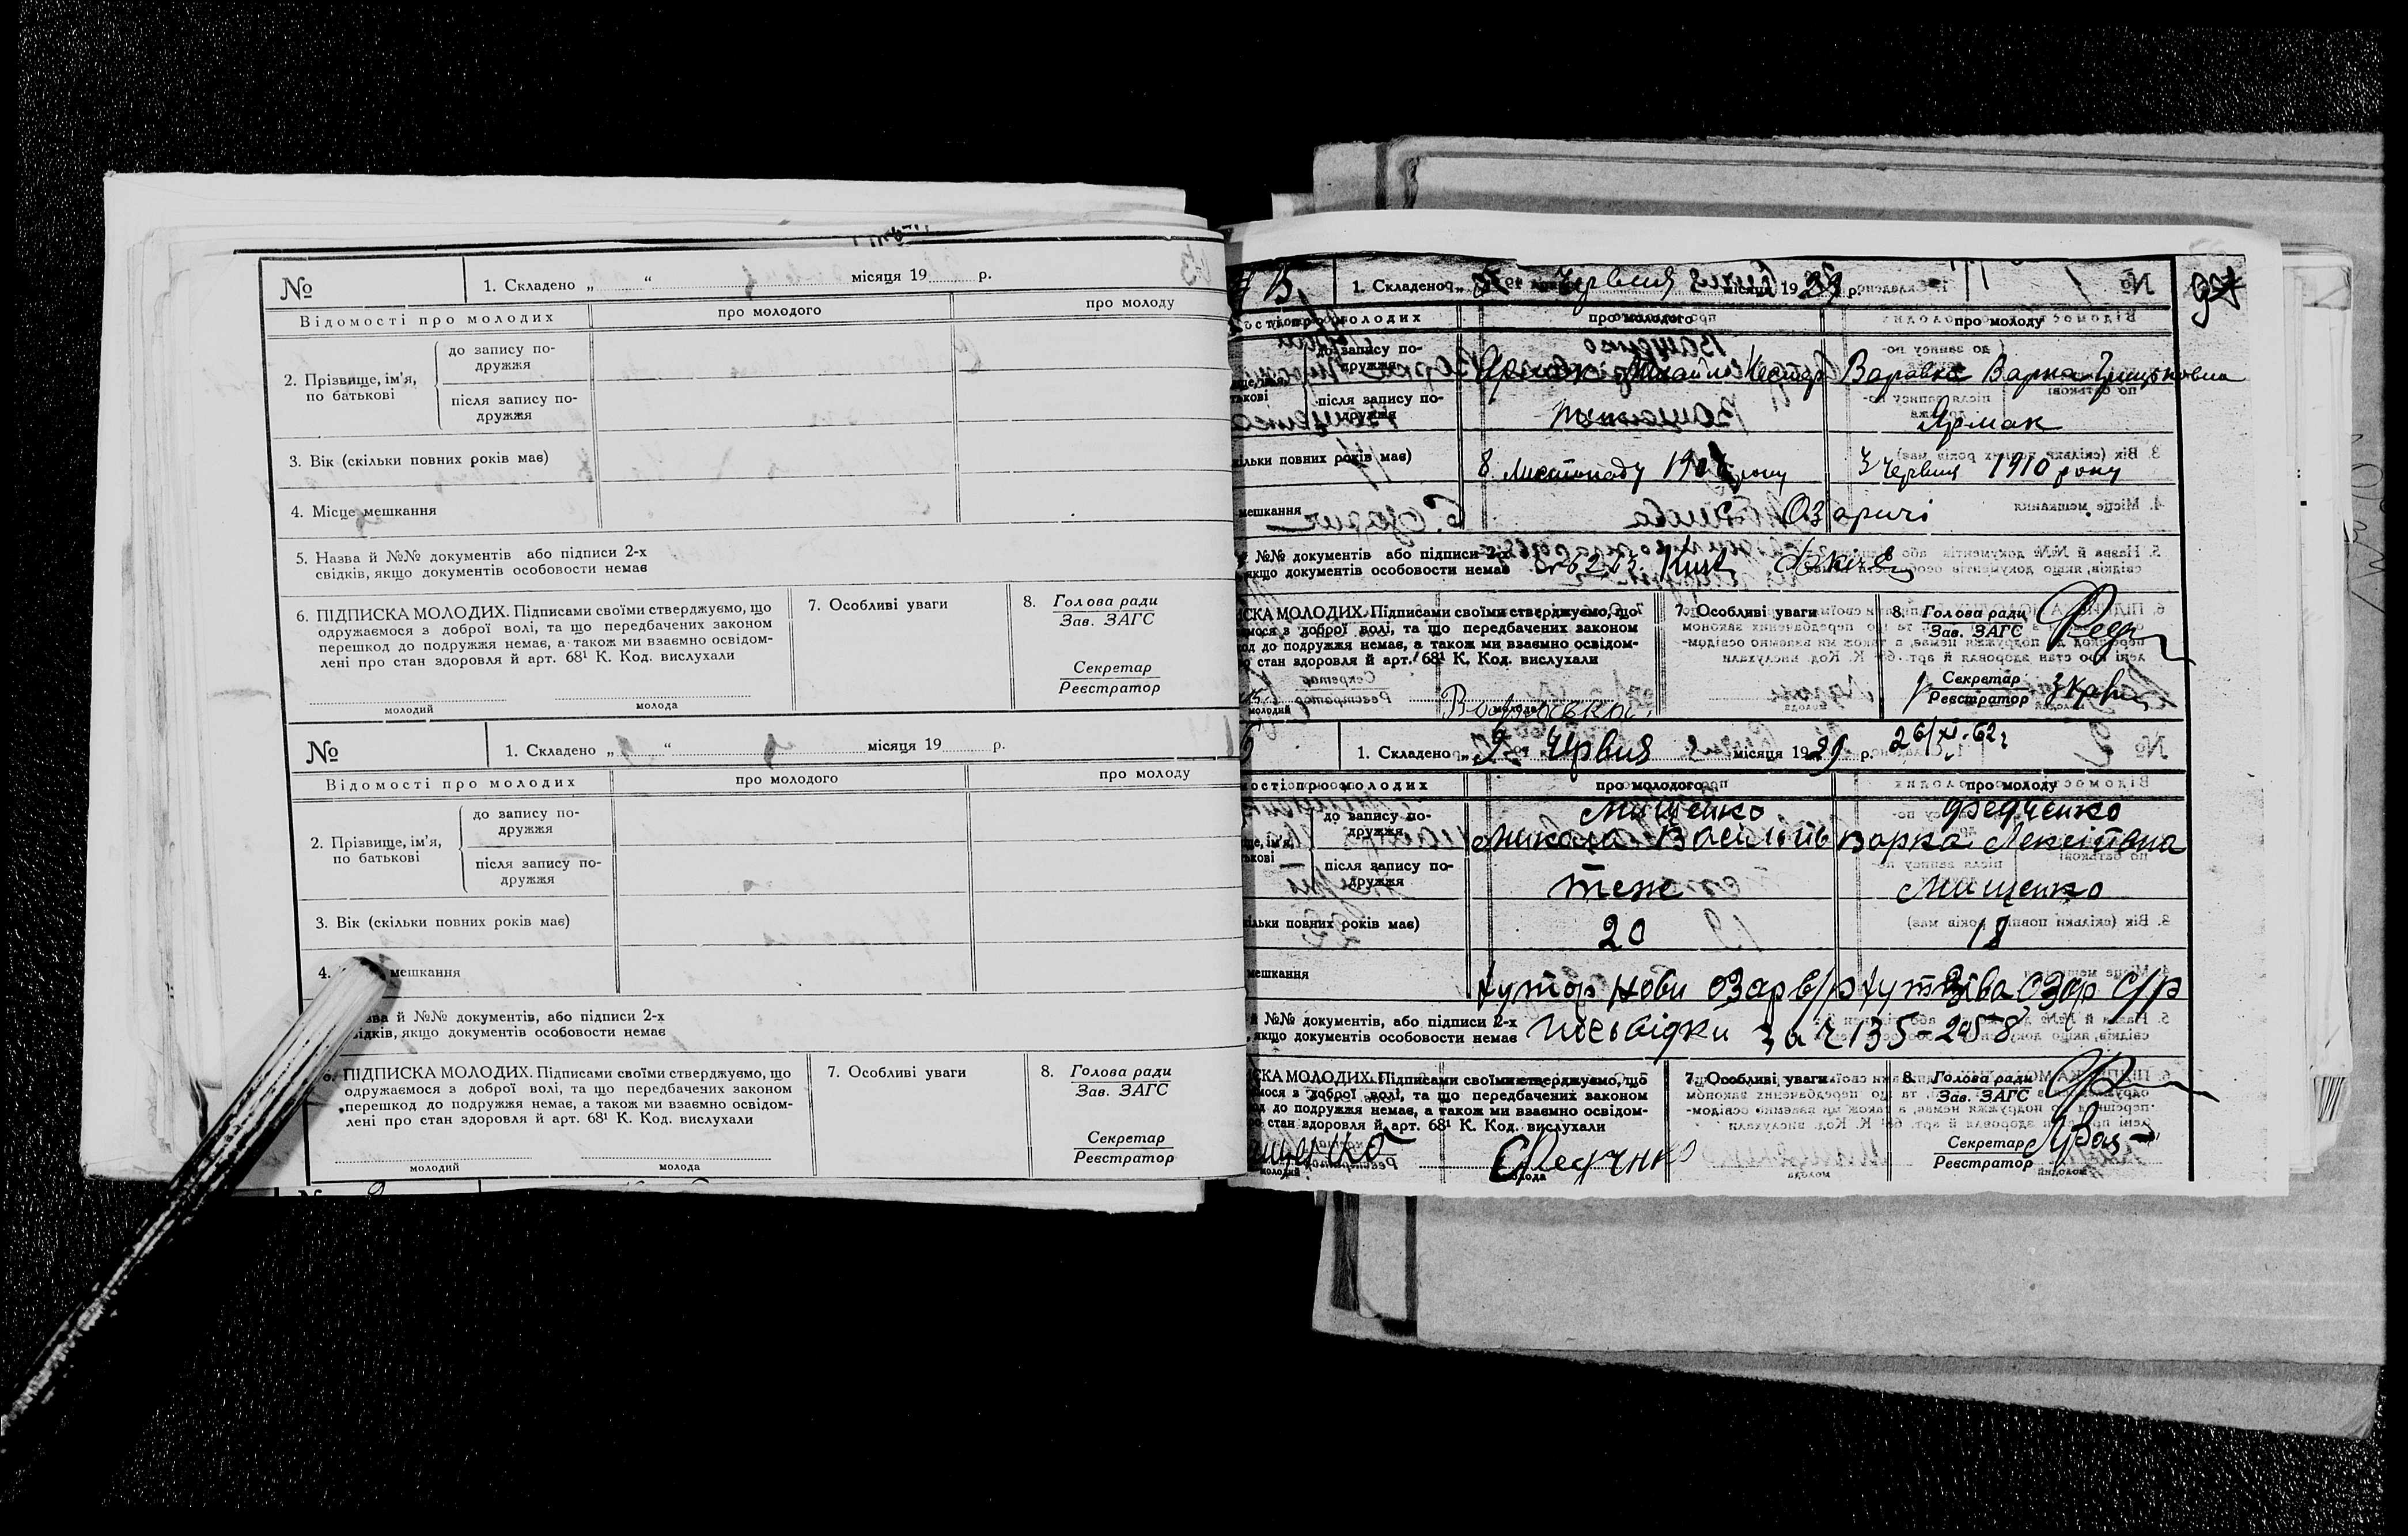 №
1. Складено „ “ місяця 19 р.
Відомості про молодих
про молодого
про молоду
2. Прізвище, ім'я, по батькові
до запису по-
дружжя
після запису по-
дружжя
3. Вік (скільки повних років має)
4. Місце мешкання
5. Назва й №№ документів або підписи 2-х
свідків, якщо документів особовости немає
6. ПІДПИСКА МОЛОДИХ. Підписами своїми стверджуємо, що
одружаємося з доброї волі, та що передбачених законом
перешкод до подружжя немає, а також ми взаємно освідом-
лені про стан здоровля й арт. 68¹ К. Код. вислухали
молодий
молода
7. Особливі уваги
8. Голова ради
Зав. ЗАГС
Секретар
Реєстратор
№
1. Складено „ “ місяця 19 р.
Відомості про молодих
про молодого
про молоду
2. Прізвище, ім'я,
по батькові
до запису по-
дружжя
після запису по-
дружжя
3. Вік (скільки повних років має)
4. мешкання
й №№ документів, або підписи 2-х
якщо документів особовости немає
ПІДПИСКА МОЛОДИХ. Підписами своїми стверджуємо, що
одружаємося з доброї волі, та що передбачених законом
перешкод до подружжя немає, а також ми взаємно освідом-
лені про стан здоровля й арт. 68¹ К. Код. вислухали
молодий
молода
7. Особливі уваги
8. Голова ради
Зав. ЗАГС
Секретар
Реєстратор
1. Складено „ Червня місяця 1929 р.
про молодого
про молоду
до запису по-
дружжя
Ярмак Михайло Нестер
Варавка Варка Грицьковна
після запису по-
дружжя
теж
Ярмак
років має)
8 Листопаду
3 Червня 1910 року
мешкання
Озаричі
№№ документів або підписи 2-х
якщо документів особовости немає
МОЛОДИХ. Підписами своїми стверджуємо, що
з доброї волі, та що передбачених законом
до подружжя немає, а також ми взаємно освідом-
стан здоровля й арт. 68¹ К. Код. вислухали
молодий
молода
7. Особливі уваги
8. Голова ради
Зав. ЗАГС
Секретар
Реєстратор
1. Складено „ Червня місяця 1929 р.
26/XI-62 г
про молодого
про молоду
до запису по-
дружжя
Мищенко
Микола Василів
Федченко
Варка Лексіївна
після запису по-
дружжя
теж
Мищенко
повних років має)
20
18
мешкання
хутор Нови Озар с/р
Озар с/р
№№ документів, або підписи 2-х
якщо документів особовости немає
посвідки за ч 135-2058
МОЛОДИХ. Підписами своїми стверджуємо, що
з доброї волі, та що передбачених законом
до подружжя немає, а також ми взаємно освідом-
стан здоровля й арт. 68¹ К. Код. вислухали
молодий
Федчнко
молода
7. Особливі уваги
8. Голова ради
Зав. ЗАГС
Секретар
Реєстратор